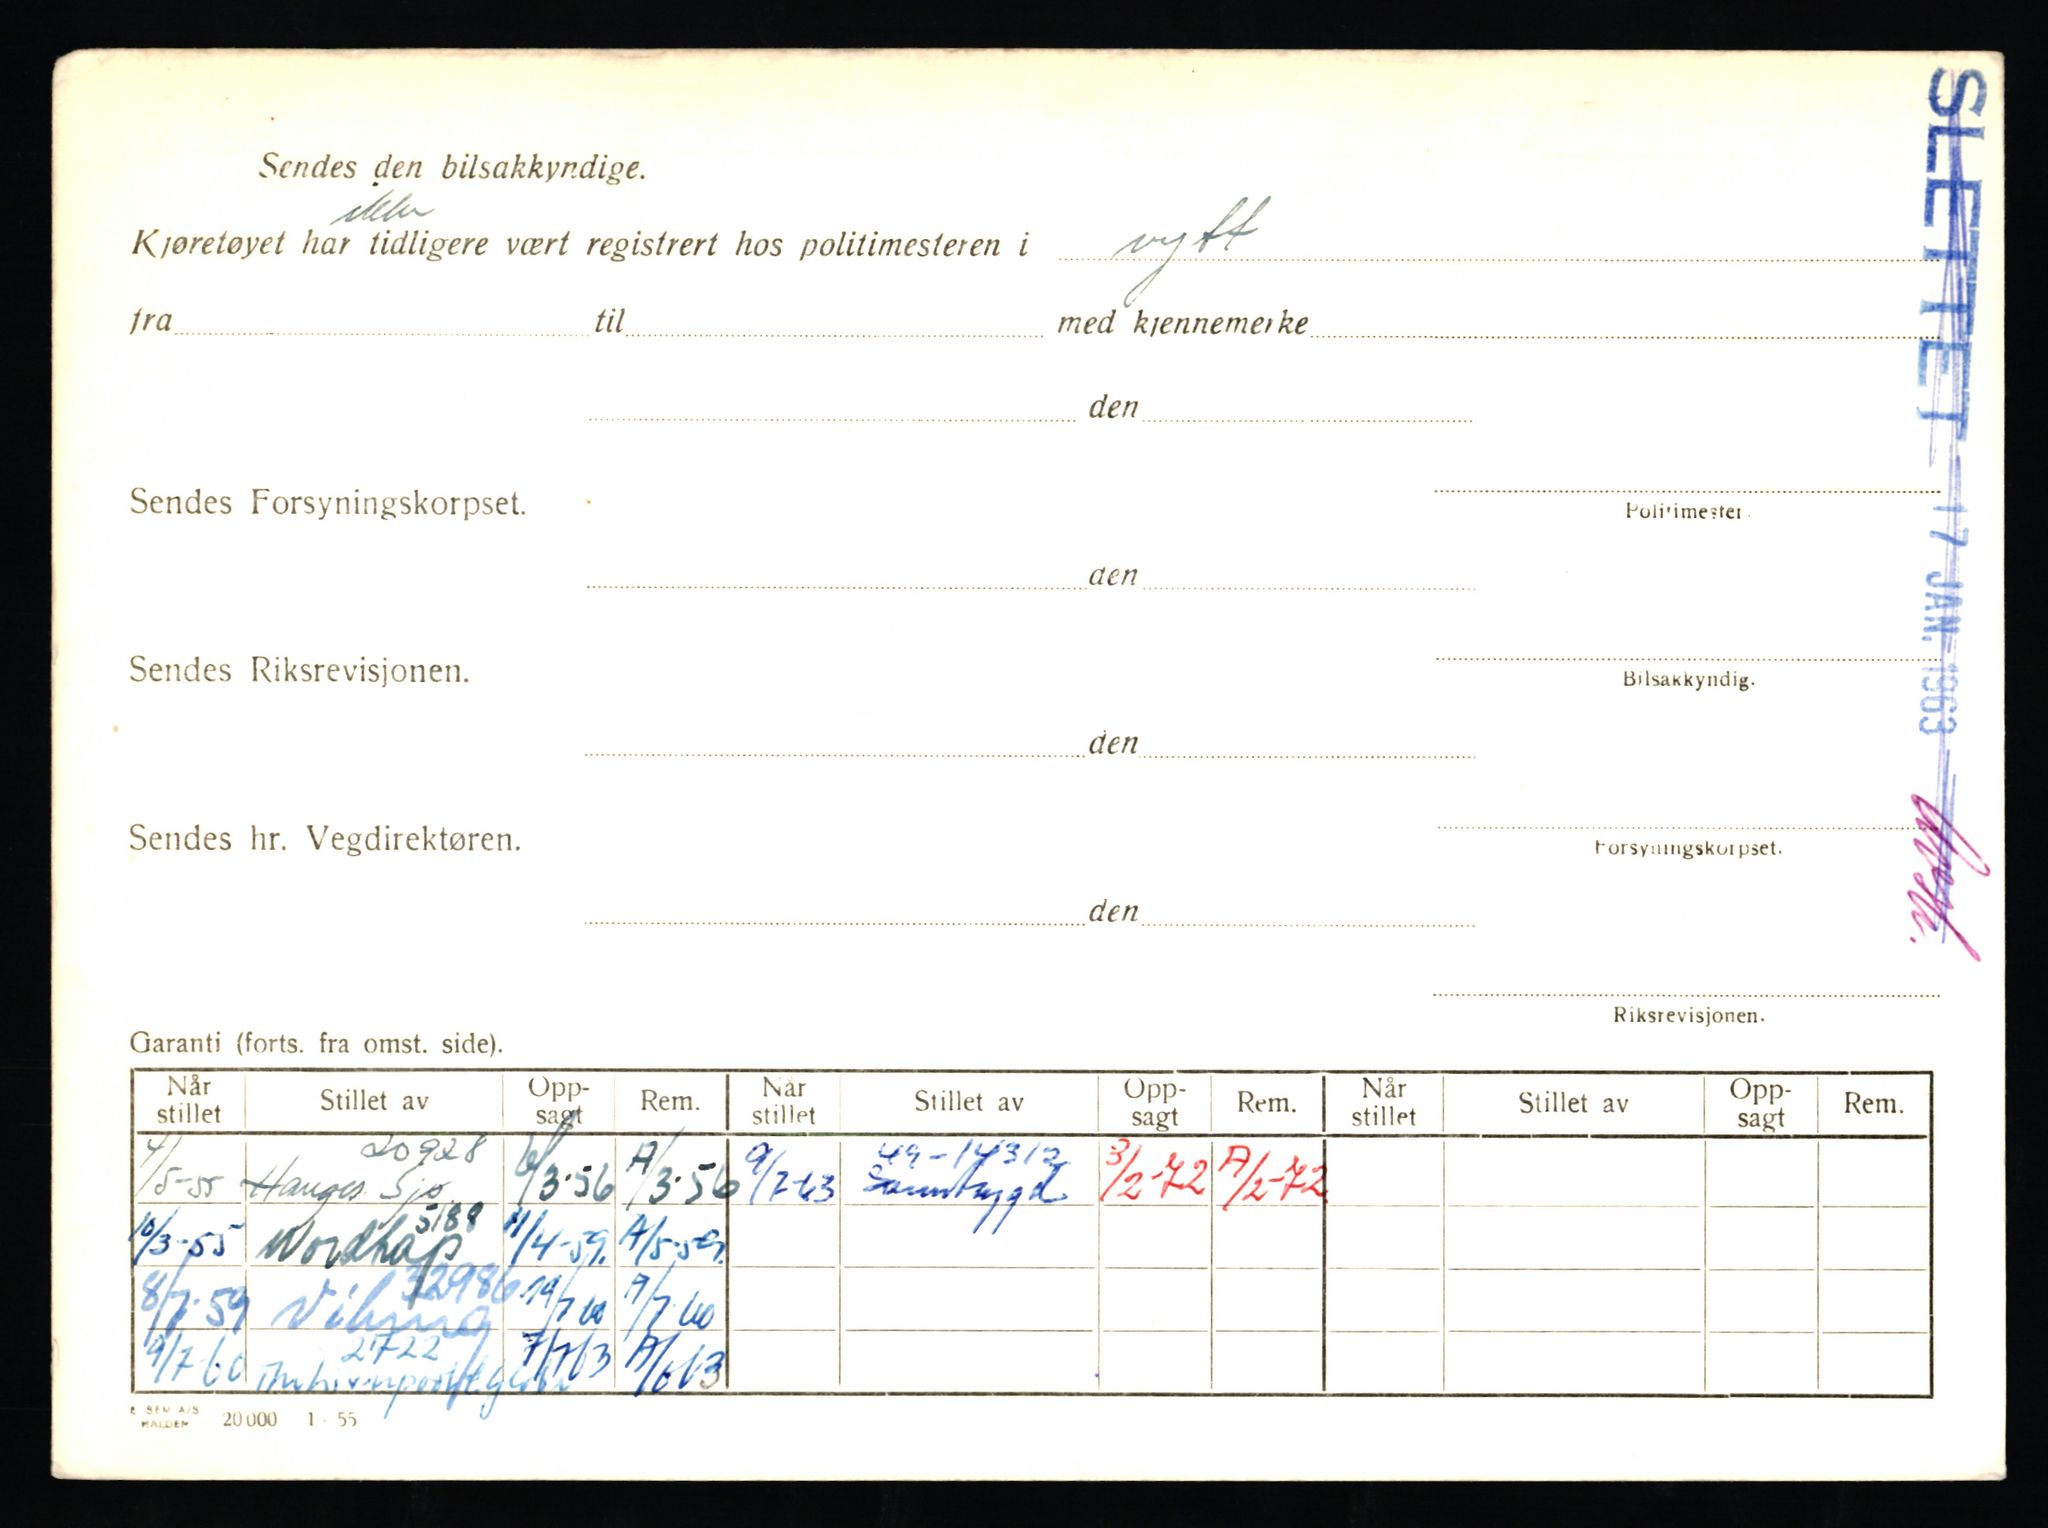 Sendes den bilsakkyndige.
ikke
Kjøretøyet har tidligere vært registrert hos politimesteren i nytt
fra til med kjennemerke
den
Sendes Forsyningskorpset.
Politimester.
den
Sendes Riksrevisjonen.
Bilsakkyndig.
den
Sendes hr. Vegdirektøren.
Forsyningskorpset.
den
Riksrevisjonen.
SLETTET 17 JAN. 1963
Garanti (forts. fra omst. side).
Når stillet Stillet av Opp-sagt Rem. Når stillet Stillet av Opp-sagt Rem. Når stillet Stillet av Opp-sagt Rem.
20928 49-14312
4/5-55 Hauges Sjø 6/3-56 A/3-56 9/7-63 Samtrygd 3/2-72 A/2-72
5188
10/3-55 Nordkap 11/4-59. A/5-59.
32986
8/7-59 Viking 19/7-60 A/7-60
2722
9/7-60 7/7/63 A/663
E SEM A/S
HALDEN 20000 1-55